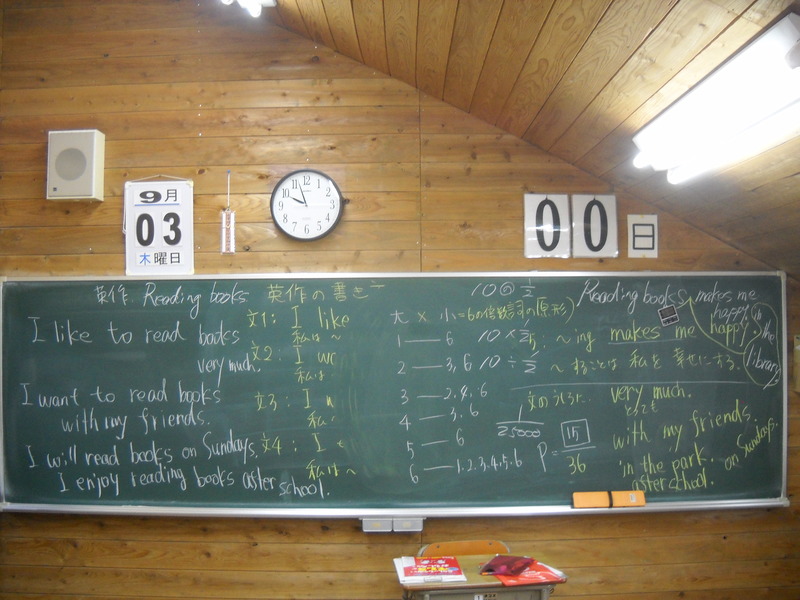 9月
03
木曜日
00
日
英作 Reading books
I like to read books
very much.
I want to read books
with my friends.
I will read books on Sundays.
I enjoy reading books aster school.
英作の書き
文1: I like
私は〜
文2: I
私は
文3: I
私
文4: I
私は〜
大 × 小=6の倍数
1 — 6
2 — 3,6
3 — 2,4,6
4 — 3,6
5 — 6
6 — 1,2,3,4,5,6
10÷1/2
1/25000
P=15/36
Reading books makes me
happy in
the
library
〜ing makes me happy
〜することは 私を 幸せにする。
文のうしろに very much.
とっても
with my friends.
in the park. on Sundays.
aster school.